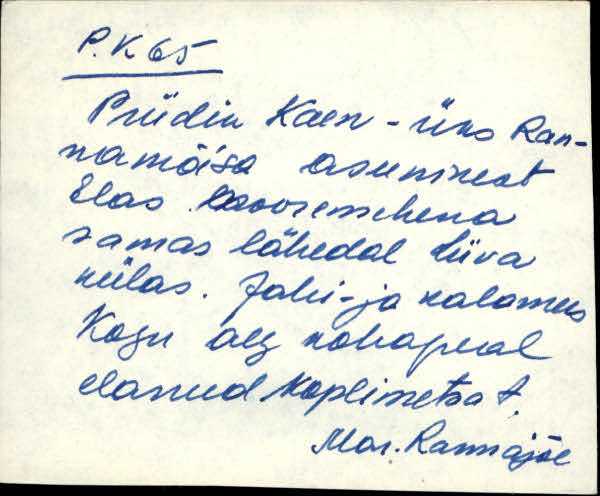 P.K 65
Priidik Kaer - üks Ran-
namõisa asunikest
Elas noore mehena
samas lähedal Liiva
külas. Jahi- ja kalamees
Kogu aeg kohapeal
elanud. Koplimetsa t.
Mar. Rannajõe